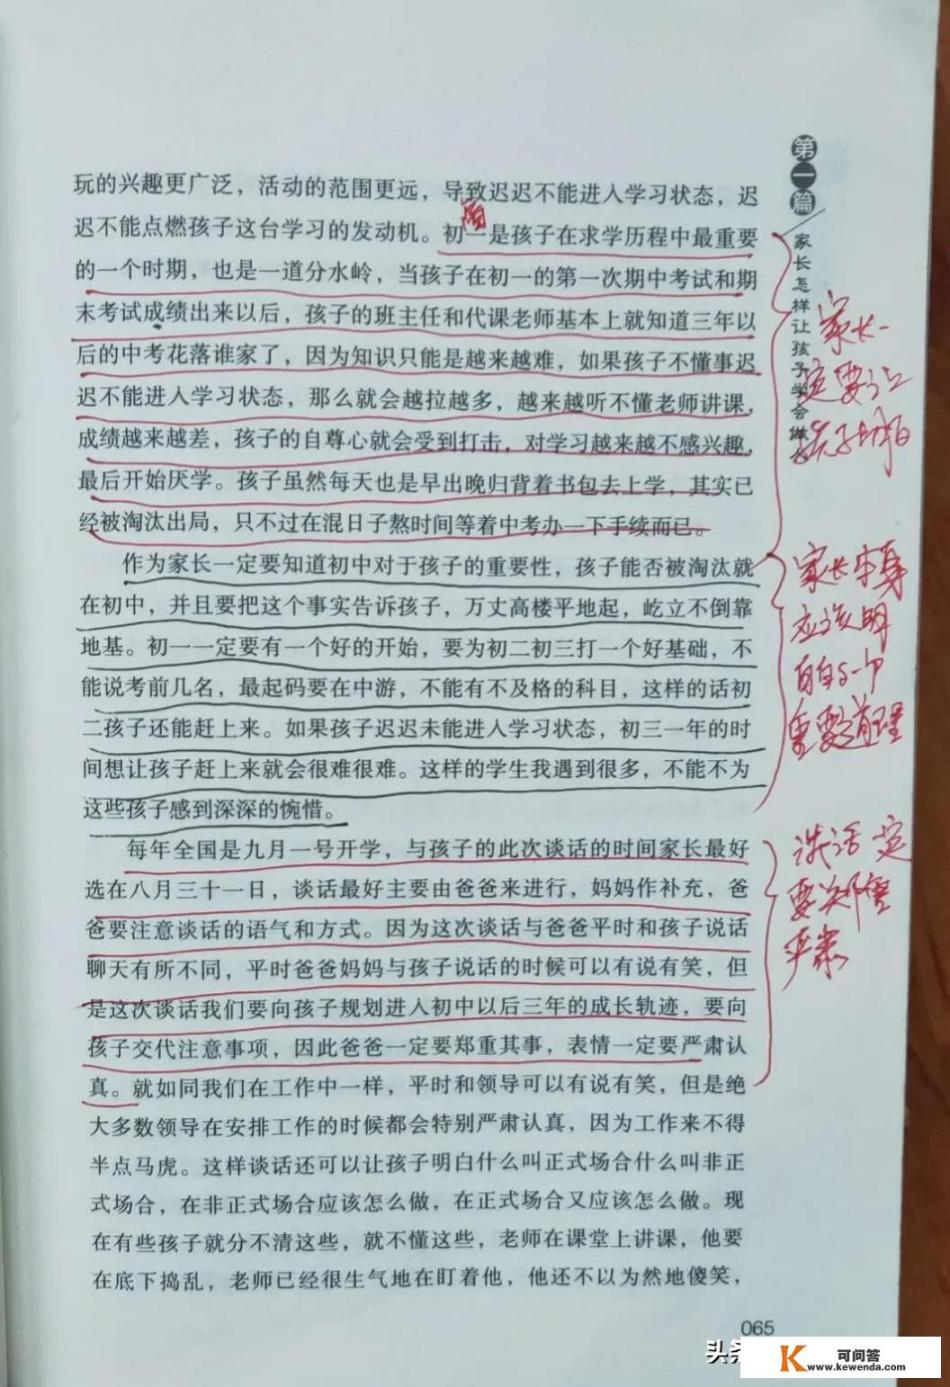 玩的兴趣更广泛，活动的范围更远，导致迟迟不能进入学习状态，迟
迟不能点燃孩子这台学习的发动机。初一是孩子在求学历程中最重要
的一个时期，也是一道分水岭，当孩子在初一的第一次期中考试和期
末考试成绩出来以后，孩子的班主任和代课老师基本上就知道三年以
后的中考花落谁家了，因为知识只能是越来越难，如果孩子不懂事迟
迟不能进入学习状态，那么就会越拉越多，越来越听不懂老师讲课，
成绩越来越差，孩子的自尊心就会受到打击，对学习越来越不感兴趣，
最后开始厌学。孩子虽然每天也是早出晚归背着书包去上学，其实已
经被淘汰出局，只不过在混日子熬时间等着中考办一下手续而已。
作为家长一定要知道初中对于孩子的重要性，孩子能否被淘汰就
在初中，并且要把这个事实告诉孩子，万丈高楼平地起，屹立不倒靠
地基。初一一定要有一个好的开始，要为初二初三打一个好基础，不
能说考前几名，最起码要在中游，不能有不及格的科目，这样的话初
二孩子还能赶上来。如果孩子迟迟未能进入学习状态，初三一年的时
间想让孩子赶上来就会很难很难。这样的学生我遇到很多，不能不为
这些孩子感到深深的惋惜。
每年全国是九月一号开学，与孩子的此次谈话的时间家长最好
选在八月三十一日，谈话最好主要由爸爸来进行，妈妈作补充，爸
爸要注意谈话的语气和方式。因为这次谈话与爸爸平时和孩子说话
聊天有所不同，平时爸爸妈妈与孩子说话的时候可以有说有笑，但
是这次谈话我们要向孩子规划进入初中以后三年的成长轨迹，要向
孩子交代注意事项，因此爸爸一定要郑重其事，表情一定要严肃认
真。就如同我们在工作中一样，平时和领导可以有说有笑，但是绝
大多数领导在安排工作的时候都会特别严肃认真，因为工作来不得
半点马虎。这样谈话还可以让孩子明白什么叫正式场合什么叫非正
式场合，在非正式场合应该怎么做，在正式场合又应该怎么做。现
在有些孩子就分不清这些，就不懂这些，老师在课堂上讲课，他要
在底下捣乱，老师已经很生气地在盯着他，他还不以为然地傻笑，
第一篇
家长怎样让孩子学会做
家长一
定要让
孩子明白
家长本身
应该明
白的一个
重要道理
谈话定
要郑重
严肃
065
头条
可问答
www.kewenda.com